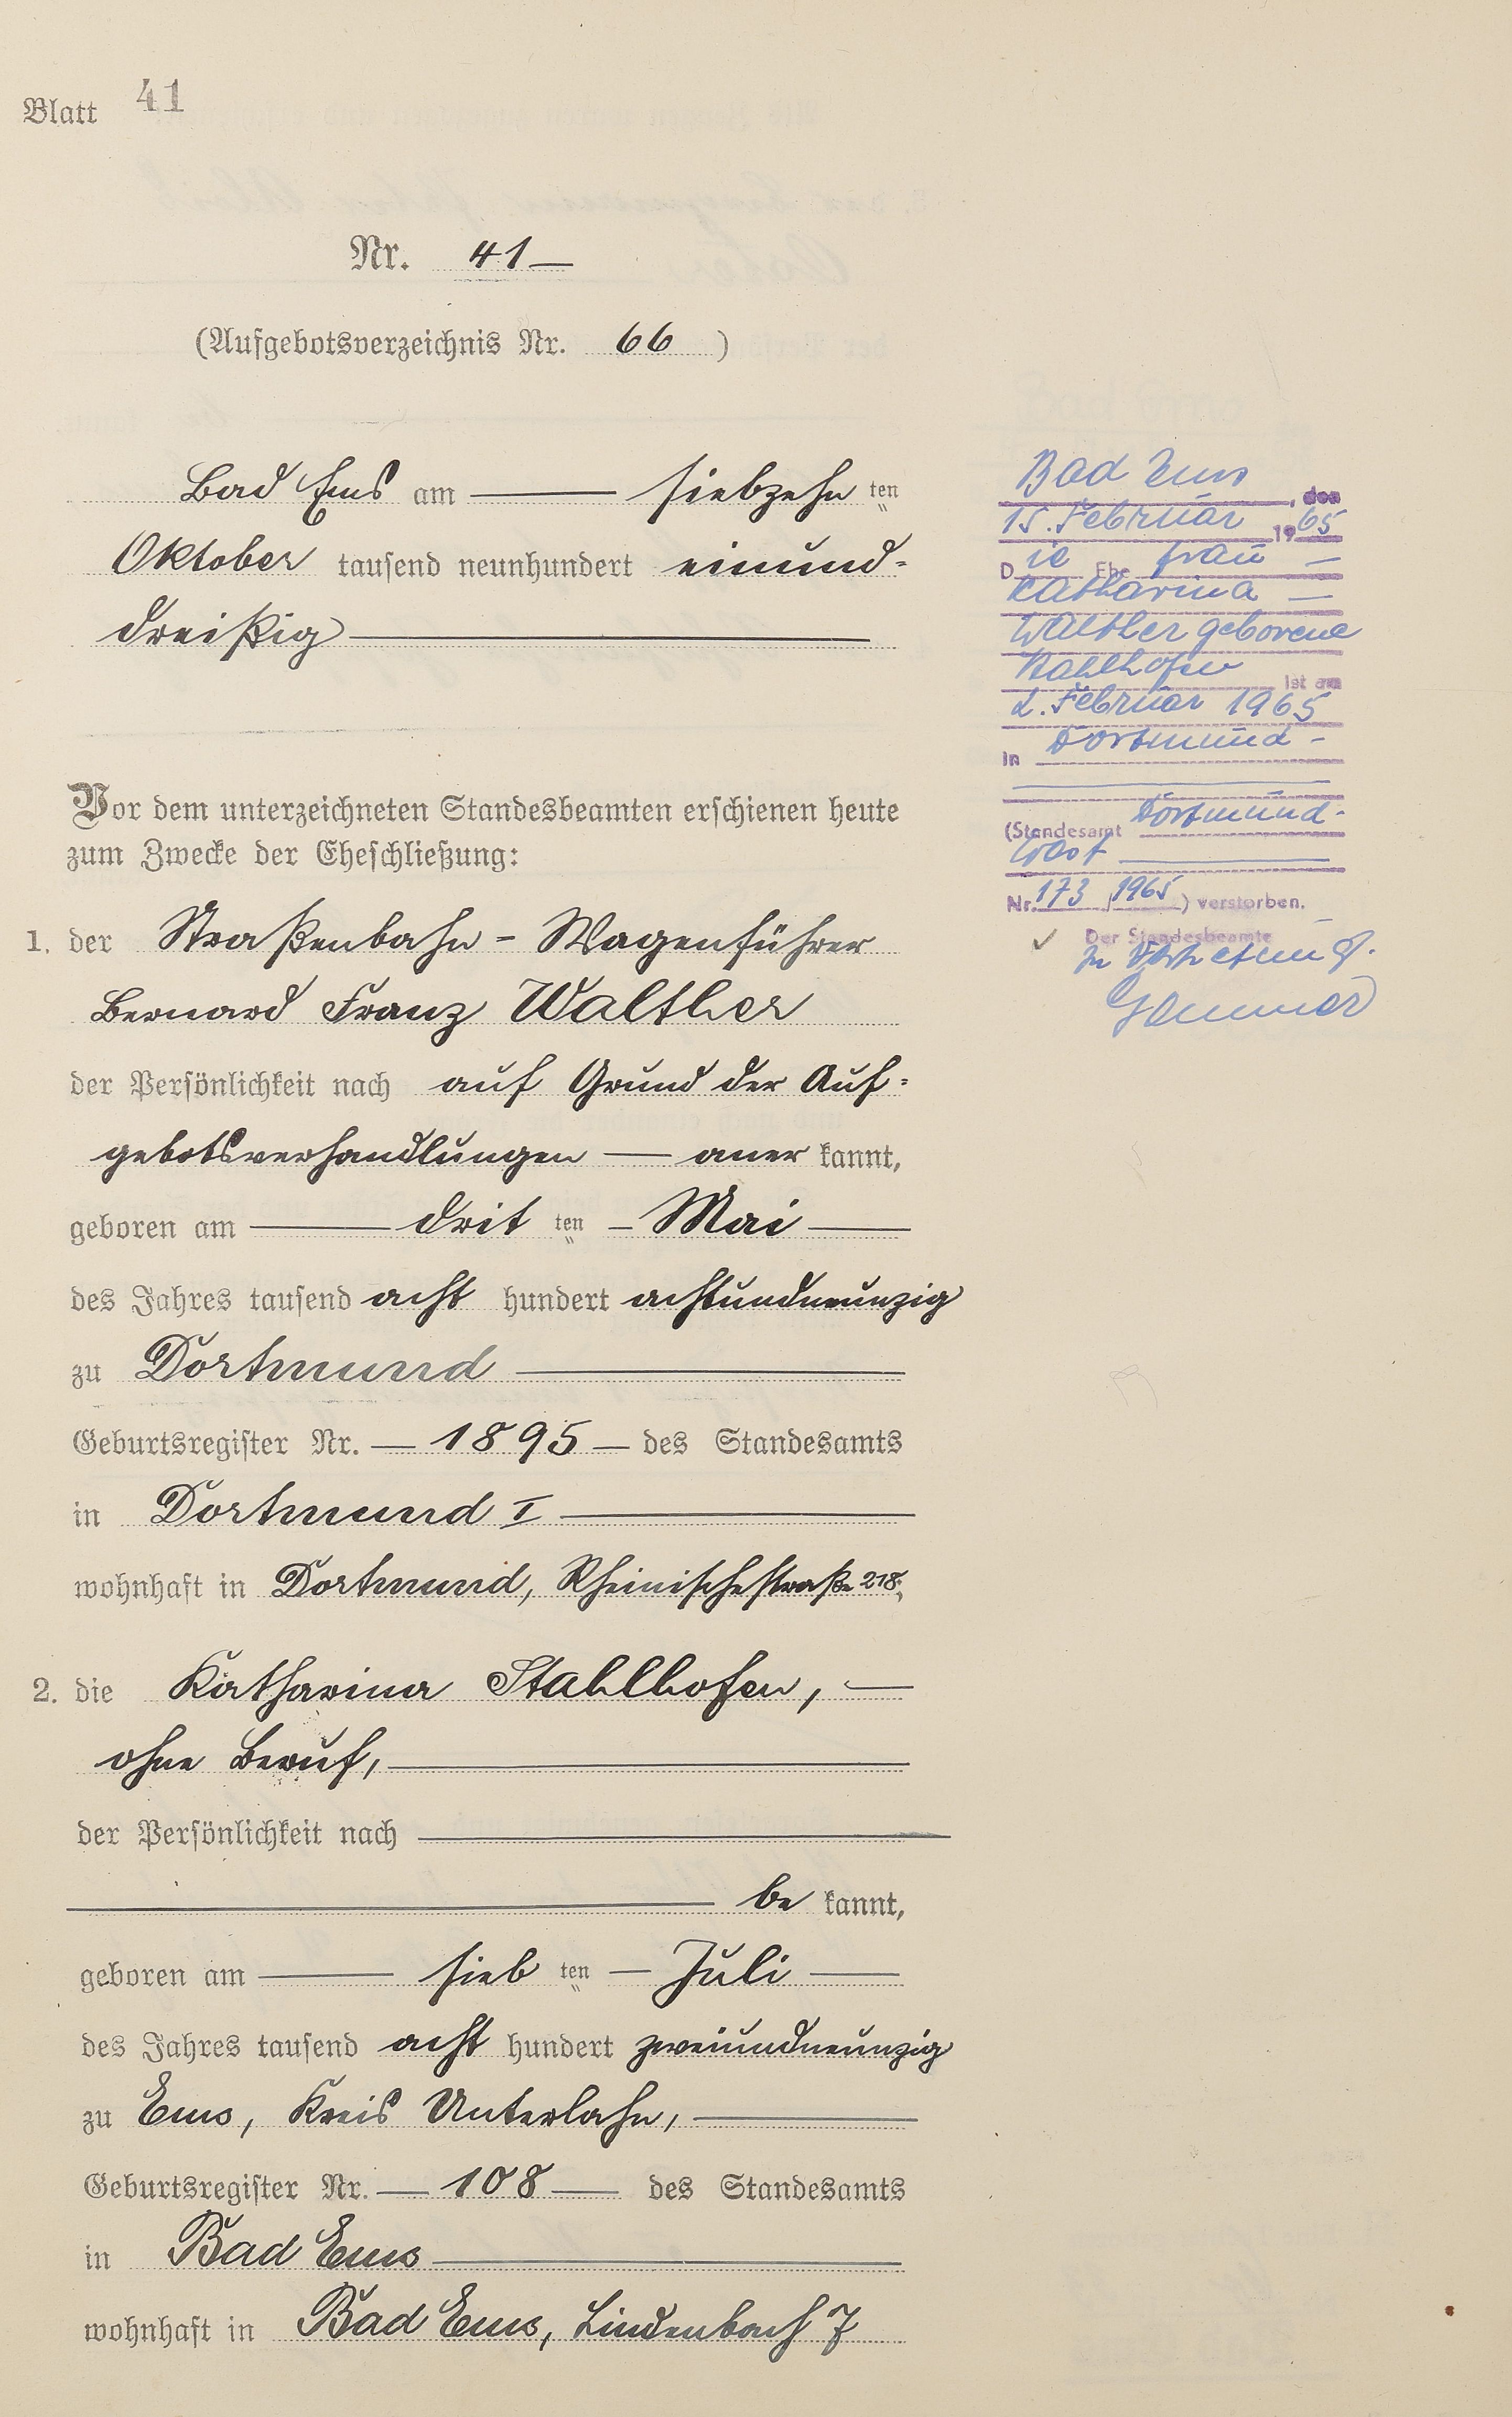 Blatt 41
Nr. 41
(Aufgebotsverzeichnis Nr. 66 )
Bad Ems am siebzehn ten
Oktober tausend neunhundert einund-
dreißig
Vor dem unterzeichneten Standesbeamten erschienen heute
zum Zwecke der Eheschließung:
1. der Straßenbahn-Wagenführer
Bernard Franz Walther
der Persönlichkeit nach auf Grund der Auf-
gebotsverhandlungen — aner kannt,
geboren am drit ten Mai
des Jahres tausend acht hundert achtundneunzig
zu Dortmund
Geburtsregister Nr. 1895 des Standesamts
in Dortmund I
wohnhaft in Dortmund, Rheinischestraße 218;
2. die Katharina Stahlhofen,
ohne Beruf,
der Persönlichkeit nach
be kannt,
geboren am sieb ten Juli
des Jahres tausend acht hundert zweiundneunzig
zu Ems, Kreis Unterlahn,
Geburtsregister Nr. 108 des Standesamts
in Bad Ems
wohnhaft in Bad Ems, Lindenbach 7
Bad Ems, den
15. Februar 1965
Die Ehe frau
Katharina
Walther geborene
Stahlhofen ist am
2. Februar 1965
in Dortmund
(Standesamt Dortmund-
West
Nr. 173 / 1965 ) verstorben.
Der Standesbeamte
In Vertretung.